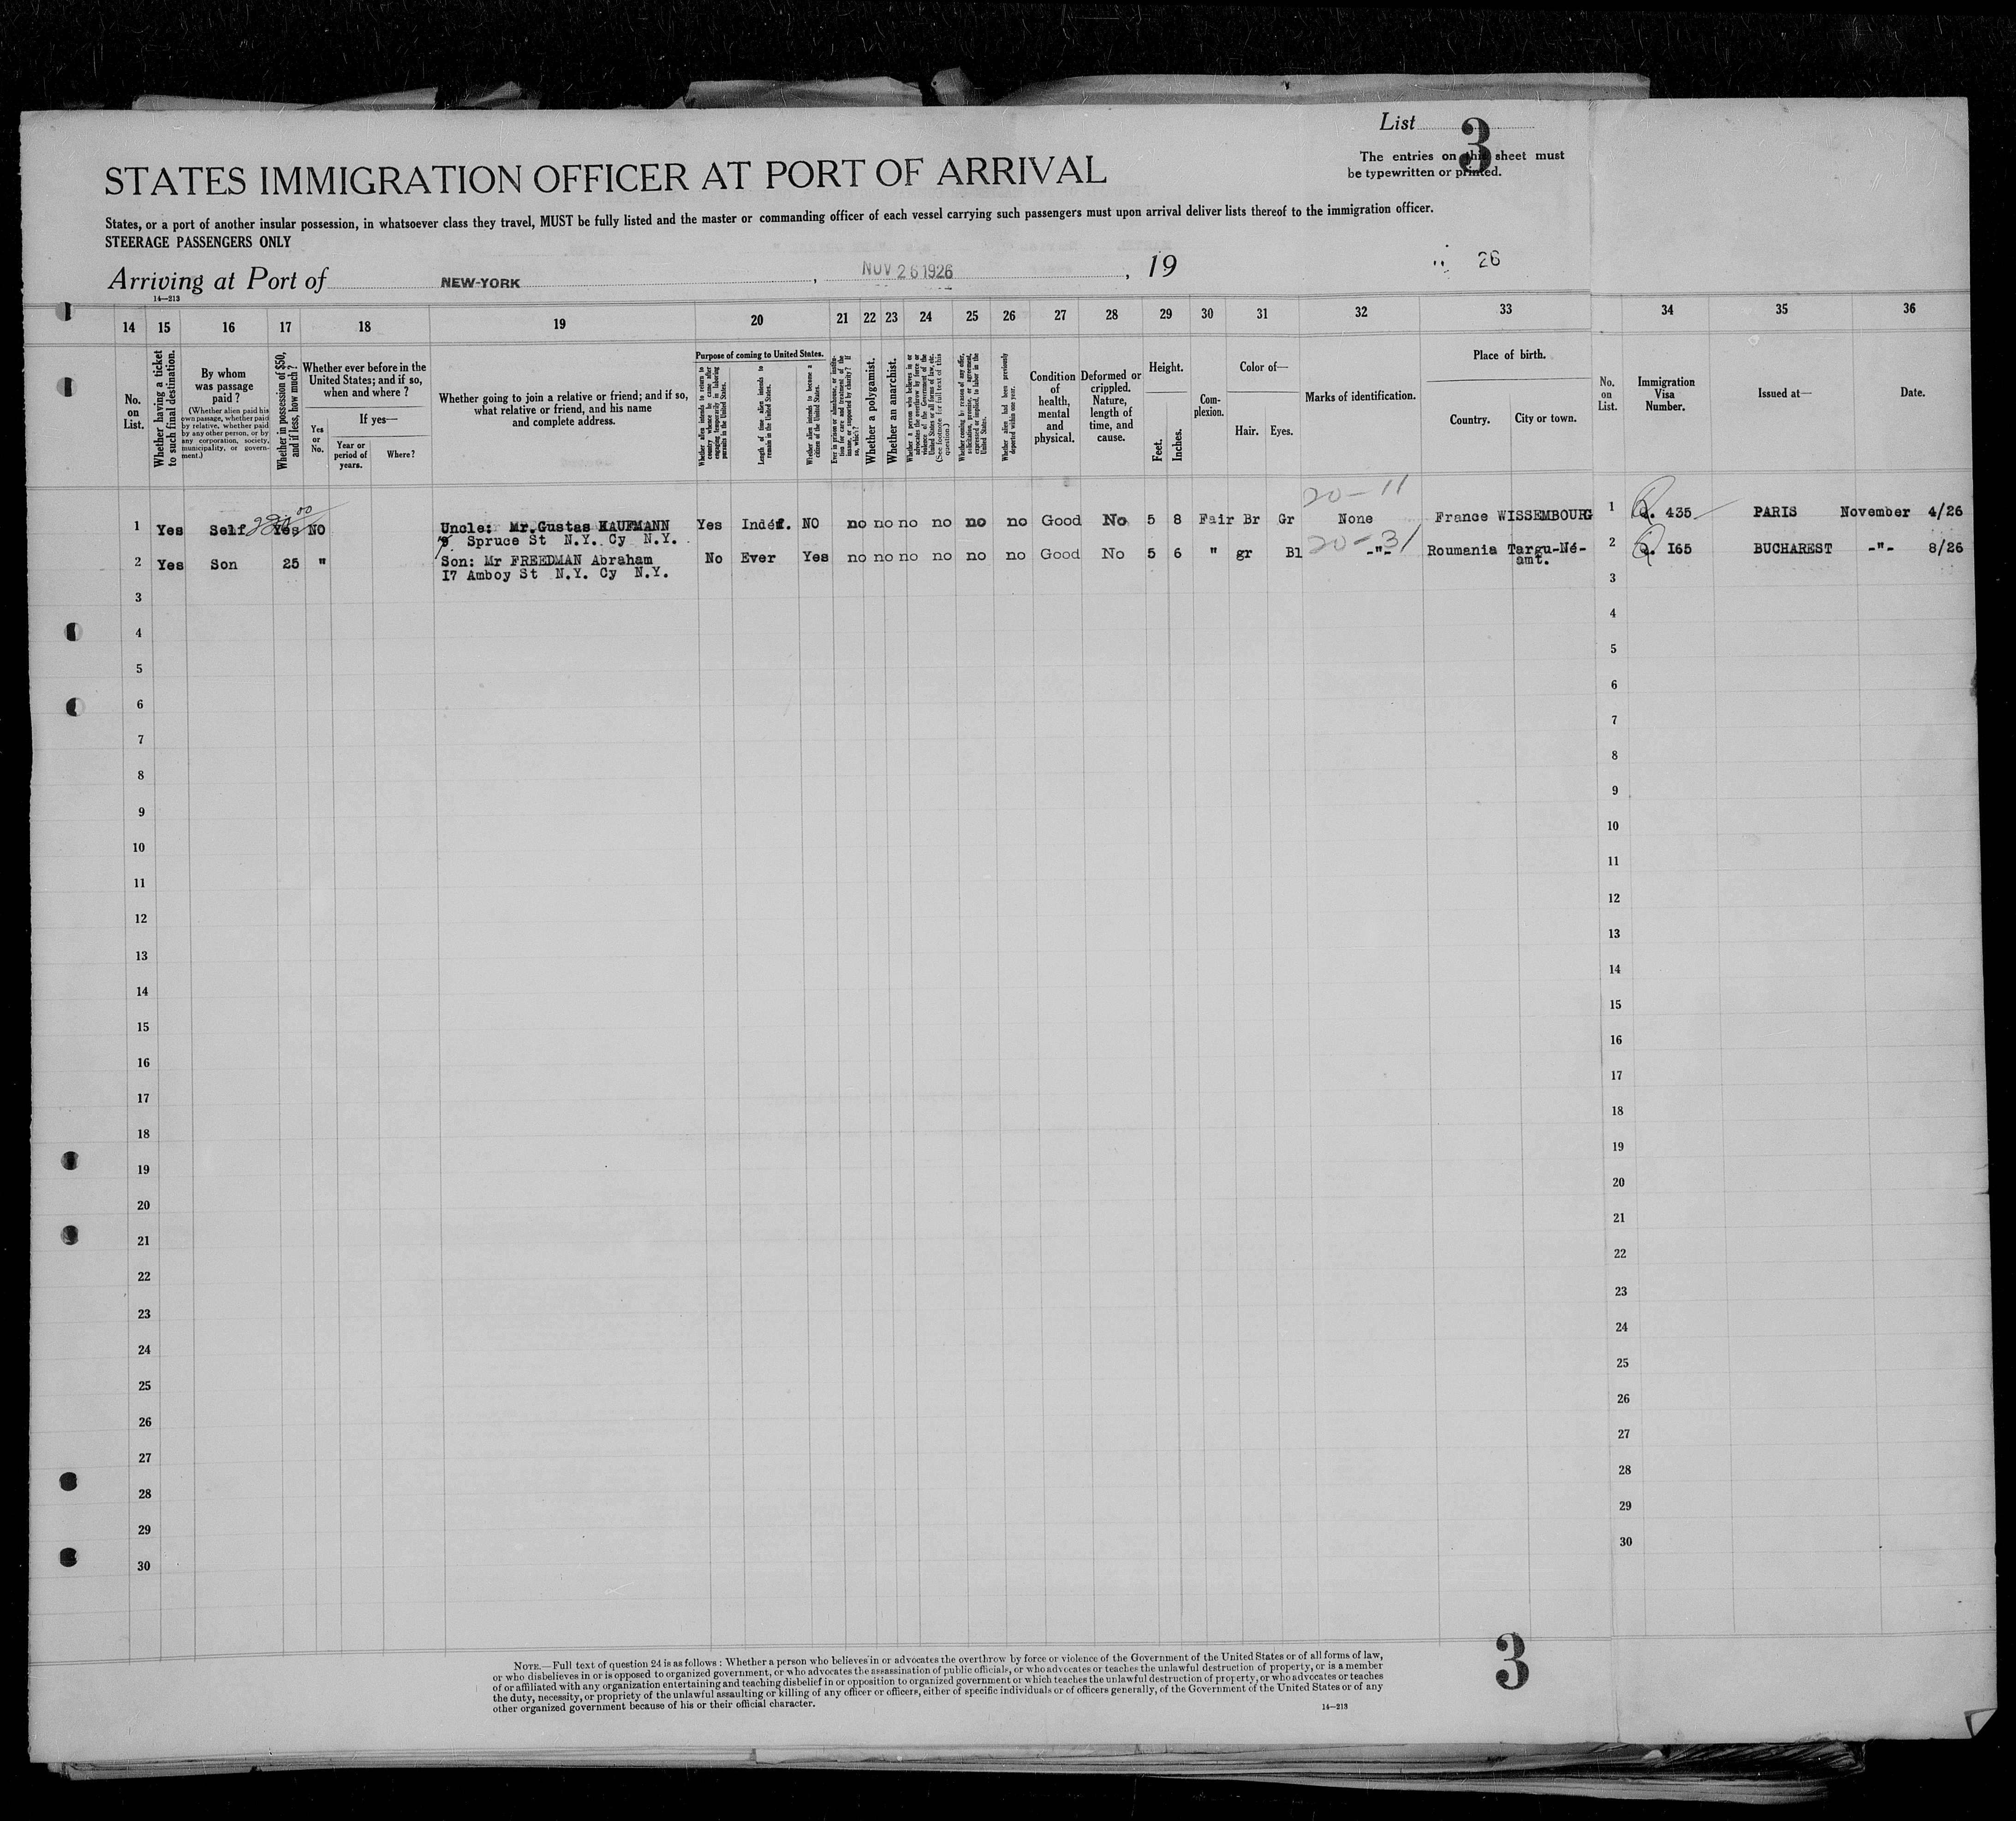 List 3
The entries on this sheet must
be typewritten or printed.
STATES IMMIGRATION OFFICER AT PORT OF ARRIVAL
States, or a port of another insular possession, in whatsoever class they travel, MUST be fully listed and the master or commanding officer of each vessel carrying such passengers must upon arrival deliver lists thereof to the immigration officer.
STEERAGE PASSENGERS ONLY
Arriving at Port of NEW-YORK, NOV 26 1926, 19 26
14—213
14 15 16 17 18 19 20 21 22 23 24 25 26 27 28 29 30 31 32 33 34 35 36
No. on List.
Whether having a ticket to such final destination.
By whom was passage paid?
(Whether alien paid his own passage, whether paid by relative, whether paid by any other person, or by any corporation, society, municipality, or government.)
Whether in possession of $50, and if less, how much?
Whether ever before in the United States; and if so, when and where?
If yes—
Yes or No.
Year or period of years.
Where?
Whether going to join a relative or friend; and if so, what relative or friend, and his name and complete address.
Purpose of coming to United States.
Whether alien intends to return to country whence he came after engaging temporarily in laboring pursuits in the United States.
Length of time alien intends to remain in the United States.
Whether alien intends to become a citizen of the United States.
Ever in prison or almshouse, or institution for care and treatment of the insane, or supported by charity? If so, which?
Whether a polygamist.
Whether an anarchist.
Whether a person who believes in or advocates the overthrow by force or violence of the Government of the United States or all forms of law, etc. (See footnote for full text of this question.)
Whether coming by reason of any offer, solicitation, promise, or agreement, expressed or implied, to labor in the United States.
Whether alien had been previously deported within one year.
Condition of health, mental and physical.
Deformed or crippled. Nature, length of time, and cause.
Height.
Feet.
Inches.
Complexion.
Color of—
Hair.
Eyes.
Marks of identification.
Place of birth.
Country.
City or town.
No. on List.
Immigration Visa Number.
Issued at—
Date.
20-11
1 Yes Self Yes NO Uncle: Mr. Gustas KAUFMANN Yes Indéf. NO no no no no no no Good No 5 8 Fair Br Gr None France WISSEMBOURG 1 Q. 435 PARIS November 4/26
Spruce St N.Y. Cy N.Y.
20-31
2 Yes Son 25 " Son: Mr FREEDMAN Abraham No Ever Yes no no no no no no Good No 5 6 " gr Bl -"- Roumania Targu-Né-amt. 2 Q. I65 BUCHAREST -"- 8/26
I7 Amboy St N.Y. Cy N.Y.
3 3
4 4
5 5
6 6
7 7
8 8
9 9
10 10
11 11
12 12
13 13
14 14
15 15
16 16
17 17
18 18
19 19
20 20
21 21
22 22
23 23
24 24
25 25
26 26
27 27
28 28
29 29
30 30
NOTE.—Full text of question 24 is as follows: Whether a person who believes in or advocates the overthrow by force or violence of the Government of the United States or of all forms of law,
or who disbelieves in or is opposed to organized government, or who advocates the assassination of public officials, or who advocates or teaches the unlawful destruction of property, or is a member
of or affiliated with any organization entertaining and teaching disbelief in or opposition to organized government or which teaches the unlawful destruction of property, or who advocates or teaches
the duty, necessity, or propriety of the unlawful assaulting or killing of any officer or officers, either of specific individuals or of officers generally, of the Government of the United States or of any
other organized government because of his or their official character.
14—213
3